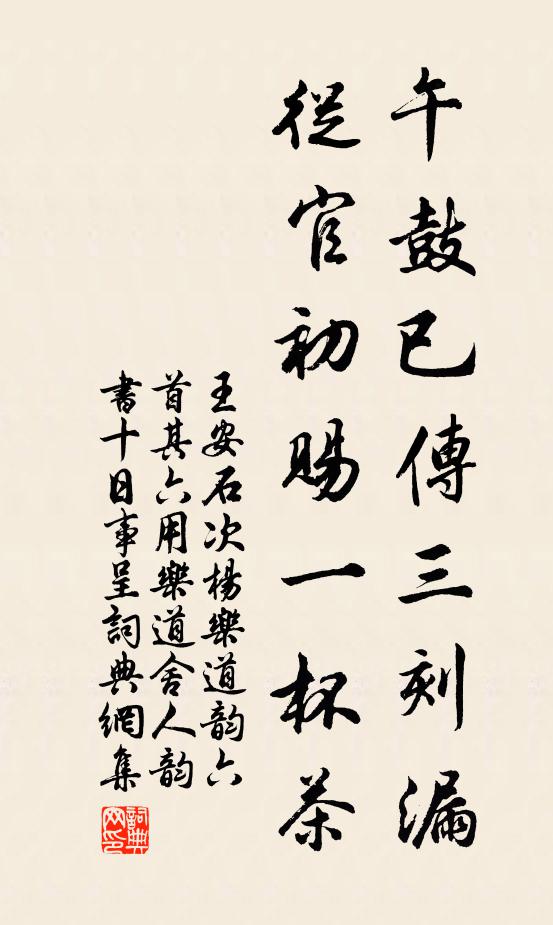 午鼓已傳三刻漏
從官初賜一杯茶
王安石次楊樂道韵六
首其六用樂道舍人韵
書十日事呈詞典網集
詞典
网印